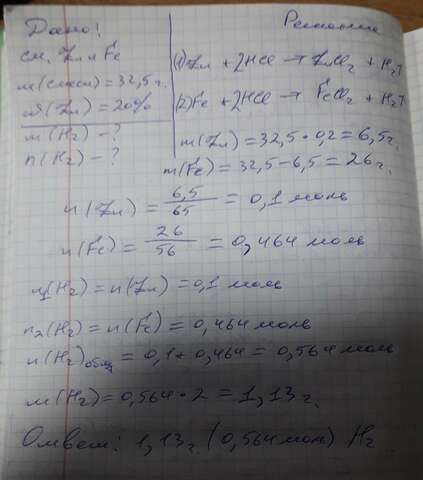 Дано:
см. Zn и Fe
m(смеси)=32,5г.
ω(Zn)=20%
m(H₂)-?
n(H₂)-?
Решение
(1) Zn + 2HCl → ZnCl₂ + H₂↑
(2) Fe + 2HCl → FeCl₂ + H₂↑
m(Zn)=32,5·0,2=6,5г.
m(Fe)=32,5-6,5=26г.
n(Zn)=6,5/65=0,1 моль
n(Fe)=26/56=0,464 моль
n₁(H₂)=n(Zn)=0,1 моль
n₂(H₂)=n(Fe)=0,464 моль
n(H₂)общ=0,1+0,464=0,564 моль
m(H₂)=0,564·2=1,13г.
Ответ: 1,13г. (0,564 мол) H₂